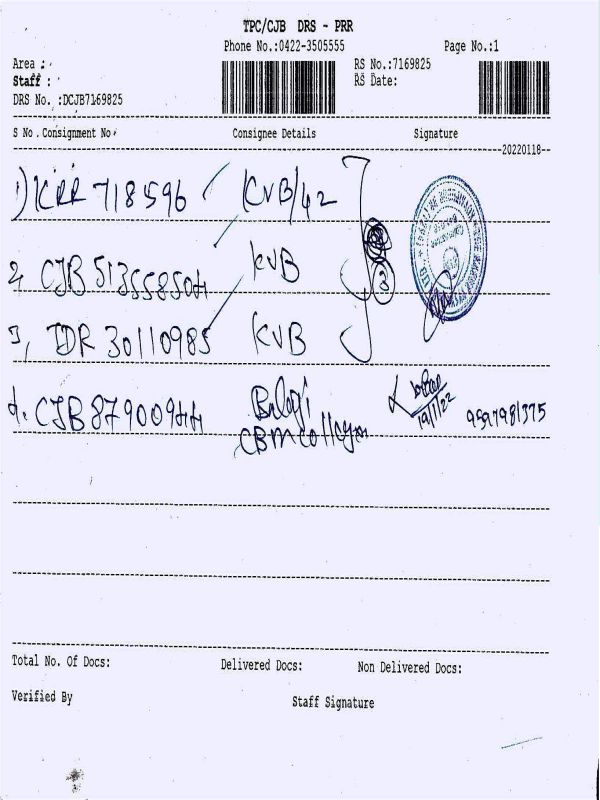 TPC/CJB DRS - PRR
Phone No.:0422-3505555 Page No.:1
Area : RS No.:7169825
Staff : RS Date:
DRS No. :DCJB7169825
S No. Consignment No. Consignee Details Signature
20220118
1) KRR 718596 KVB/42
2, CJB 513558504 KVB 3
3, IDR 30110985 KVB
4. CJB 87900944 Balaji 19/1/22 9597981375
CBM College
Total No. Of Docs: Delivered Docs: Non Delivered Docs:
Verified By Staff Signature